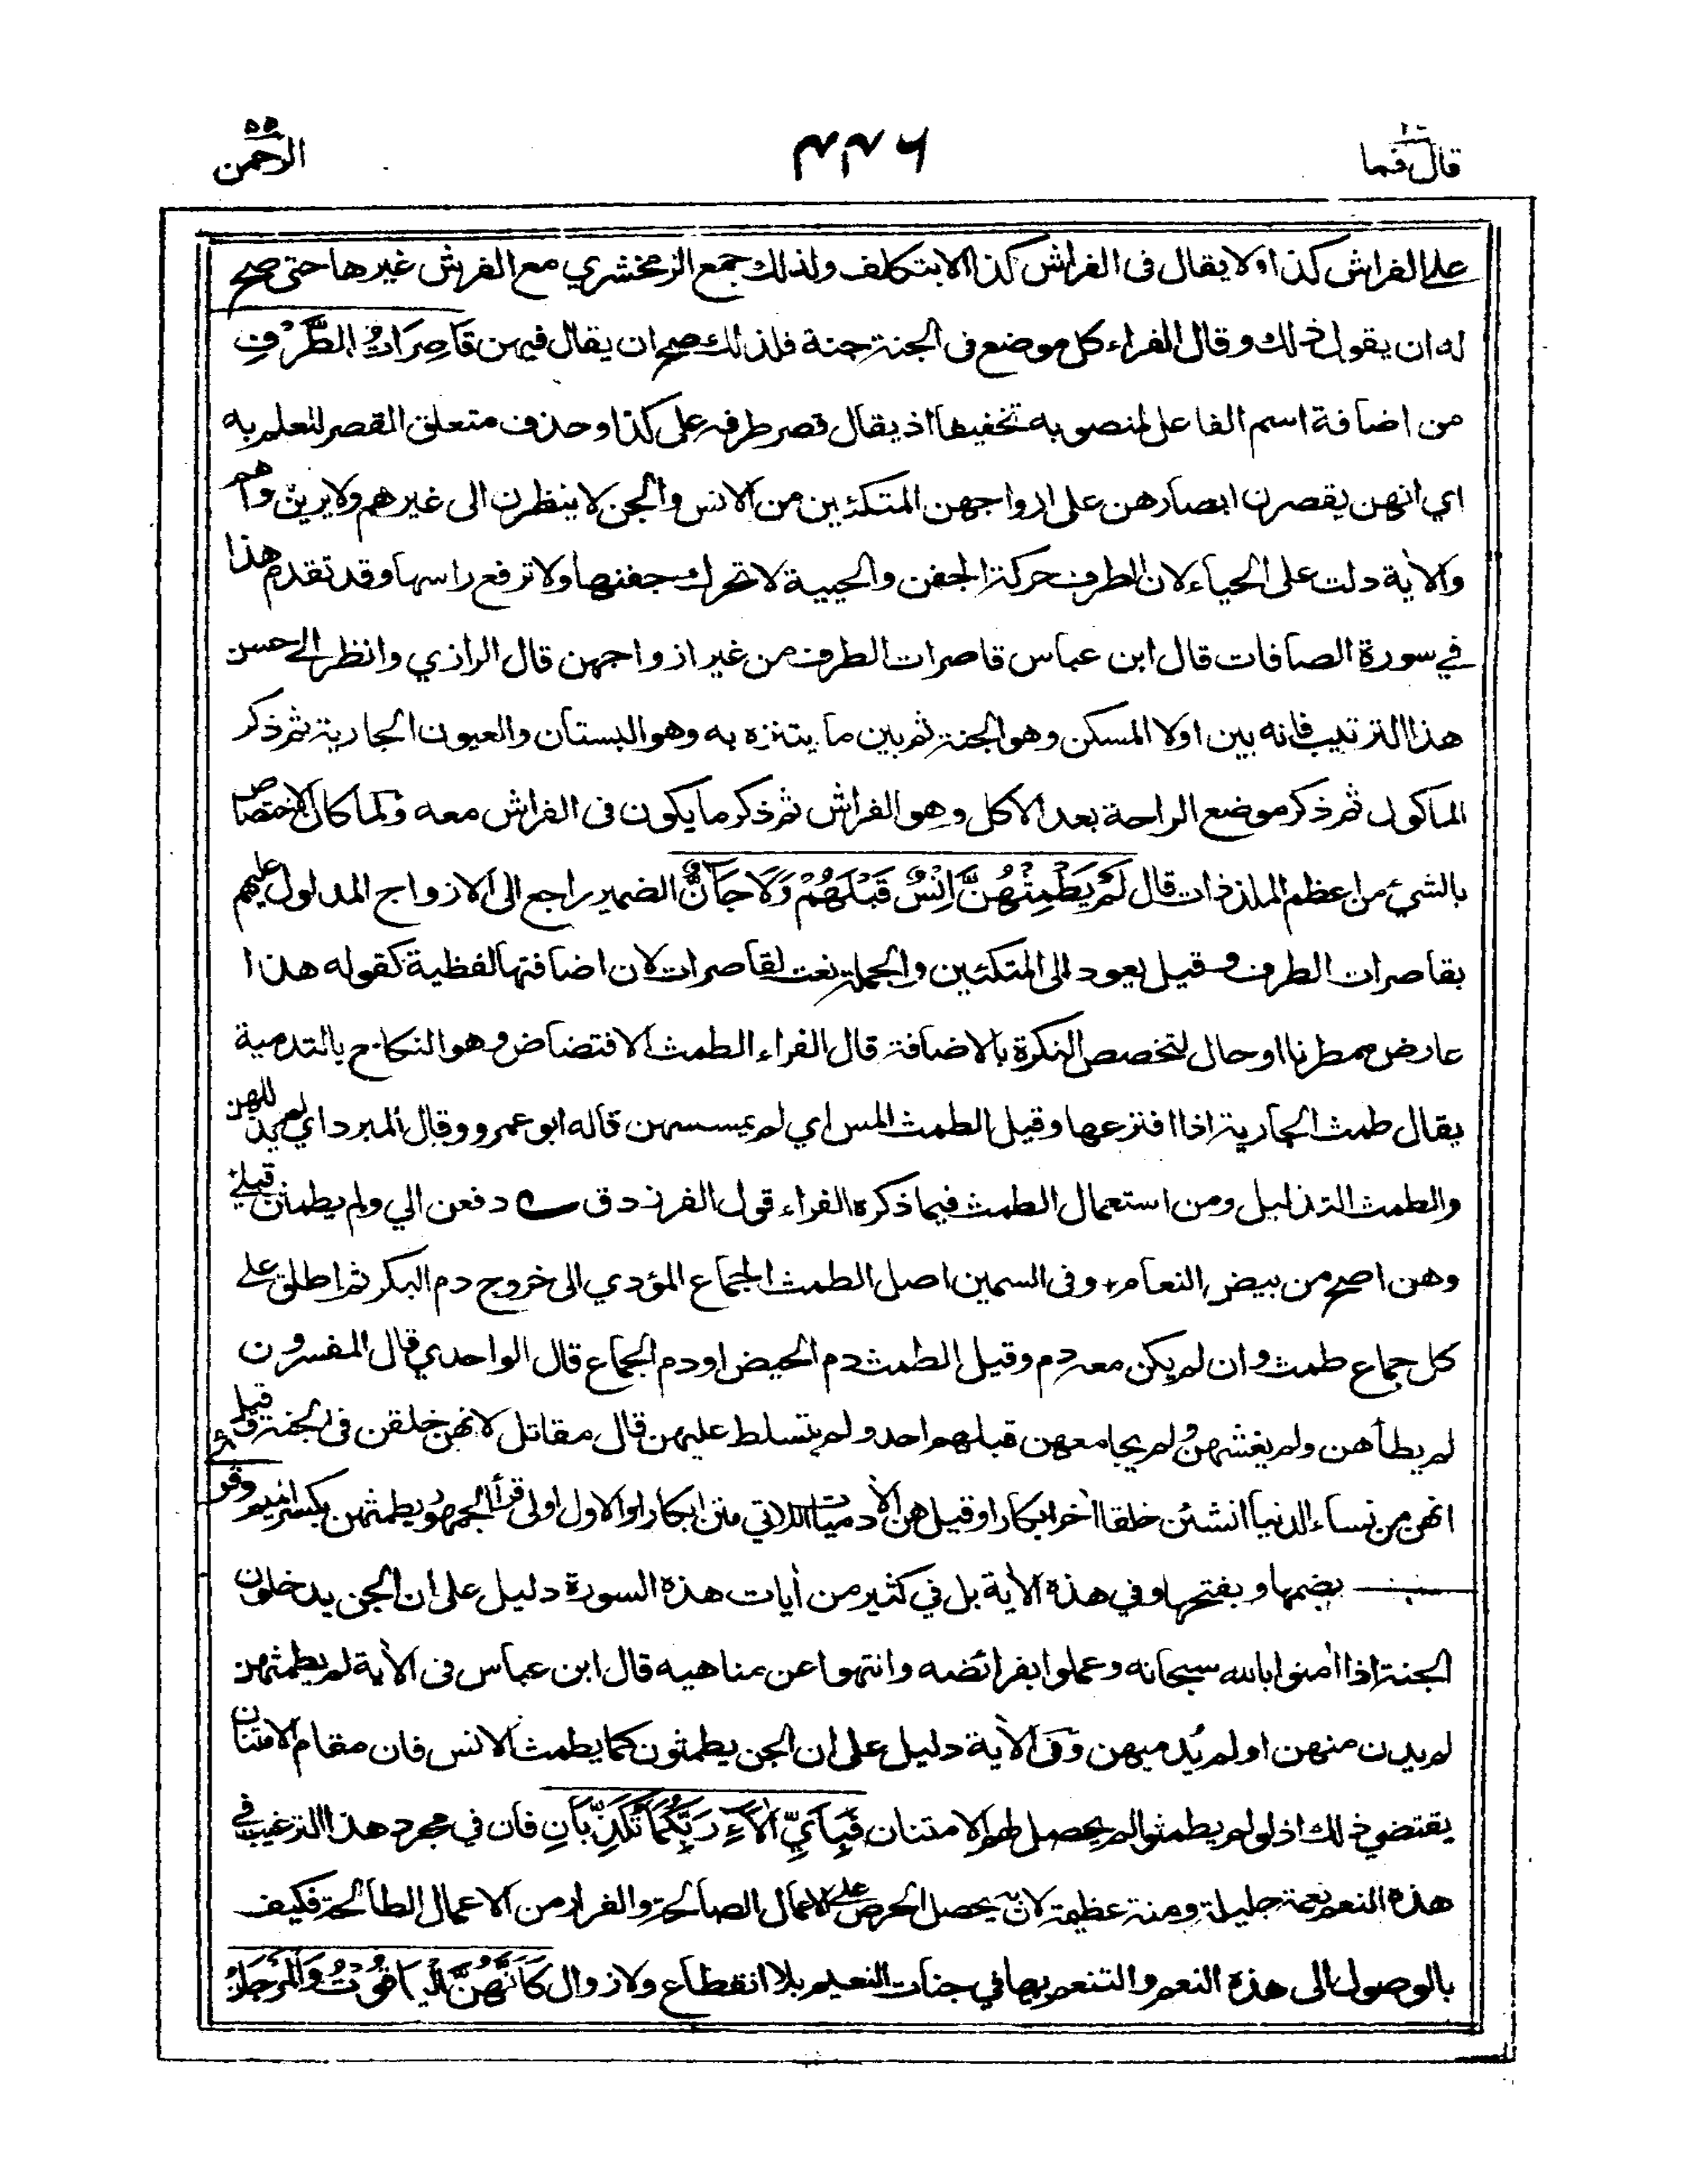 قال فما
٢٢٦
الرحمن ٥٥
على الفراش كذا ولا يقال فى الفراش كذا الا بتكلف ولذلك جمع الزمخشري مع الفرش غيرها حتى صح
له ان يقول ذلك وقال الفراء كل موضع فى الجنة جنة فلذلك صح ان يقال فيهن قَاصِرَاتُ الطَّرْفِ
من اضافة اسم الفاعل لمنصوبه تخفيفا اذ يقال قصر طرفه على كذا وحذف متعلق القصر للعلم به
اي انهن يقصرن ابصارهن على ازواجهن المتكئين من الانس والجن لا ينظرن الى غيرهم ولا يرين سواهم
والاية دلت على الحياء لان الطرف حركة الجفن والحيية لا تحرك جفنها ولا ترفع راسها وقد تقدم هذا
في سورة الصافات قال ابن عباس قاصرات الطرف من غير ازواجهن قال الرازي وانظر الى حسن
هذا الترتيب فانه بين اولا المسكن وهو الجنة ثم بين ما يتنزه به وهو البستان والعيون الجارية ثم ذكر
الماكول ثم ذكر موضع الراحة بعد الاكل وهو الفراش ثم ذكر ما يكون فى الفراش معه ولما كان الاختصاص
بالشيء من اعظم الملذذات قال لَمْ يَطْمِثْهُنَّ اِنْسٌ قَبْلَهُمْ وَلَا جَآنٌّ الضمير راجع الى الازواج المدلول عليهم
بقاصرات الطرف وقيل يعود الى المتكئين والجملة نعت لقاصرات لان اضافتها لفظية كقوله هذا
عارض ممطرنا او حال لتخصص النكرة بالاضافة قال الفراء الطمث الافتضاض وهو النكاح بالتدمية
يقال طمث الجارية اذا افترعها وقيل الطمث المس اي لم يمسسهن قاله ابو عمرو وقال المبرد اي لم يذللهن
والطمث التذليل ومن استعمال الطمث فيما ذكره الفراء قول الفرزدق ــه دفعن الي ولم يطمثن قبلي *
وهن اصح من بيض النعام + وفى السمين اصل الطمث الجماع المؤدي الى خروج دم البكر ثم اطلق على
كل جماع طمث وان لم يكن معه دم وقيل الطمث دم الحيض او دم الجماع قال الواحدي قال المفسرون
لم يطأهن ولم يغشهن ولم يجامعهن قبلهم احد ولم يتسلط عليهن قال مقاتل لانهن خلقن فى الجنة وقيل
انهن من نساء الدنيا انشئن خلقا اٰخر ابكارا وقيل هن الاٰدميات اللاتي متن ابكارا والاول اولى قرأ الجمهور يطمثهن بكسر الميم وقرئ
بضمها وبفتحها وفي هذه الاٰية بل في كثير من اٰيات هذه السورة دليل على ان الجن يدخلون
الجنة اذا اٰمنوا بالله سبحانه وعملوا بفرائضه وانتهوا عن مناهيه قال ابن عباس فى الاٰية لم يطمثهن
لم يدن منهن او لم يُدميهن وفى الاٰية دليل على ان الجن يطمثون كما يطمث الانس فان مقام الامتنان
يقتضي ذلك اذ لو لم يطمثوا لم يحصل لهم الامتنان فَبِاَيِّ اٰلَآءِ رَبِّكُمَا تُكَذِّبَانِ فان في مجرد هذا الترغيب في
هذه النعم نعمة جليلة ومنة عظيمة لان به يحصل الحرص على الاعمال الصالحة والفرار من الاعمال الطالحة فكيف
بالوصول الى هذه النعم والتنعم بها في جنات النعيم بلا انقطاع ولا زوال كَاَنَّهُنَّ الْيَاقُوْتُ وَالْمَرْجَانُ